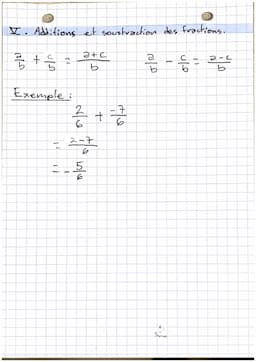 V. Additions et soustraction des fractions.
a/b + c/b = a+c/b    a/b - c/b = a-c/b
Exemple :
2/6 + -7/6
= 2-7/6
= - 5/6